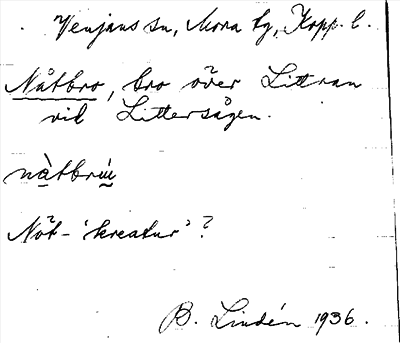 Venjans sn, Mora tg, Kopp. l.
Nåtbro, bro över Littran
vid Littersågen.
nàtbrú
Nöt- 'kreatur'?
B. Lindén 1936.